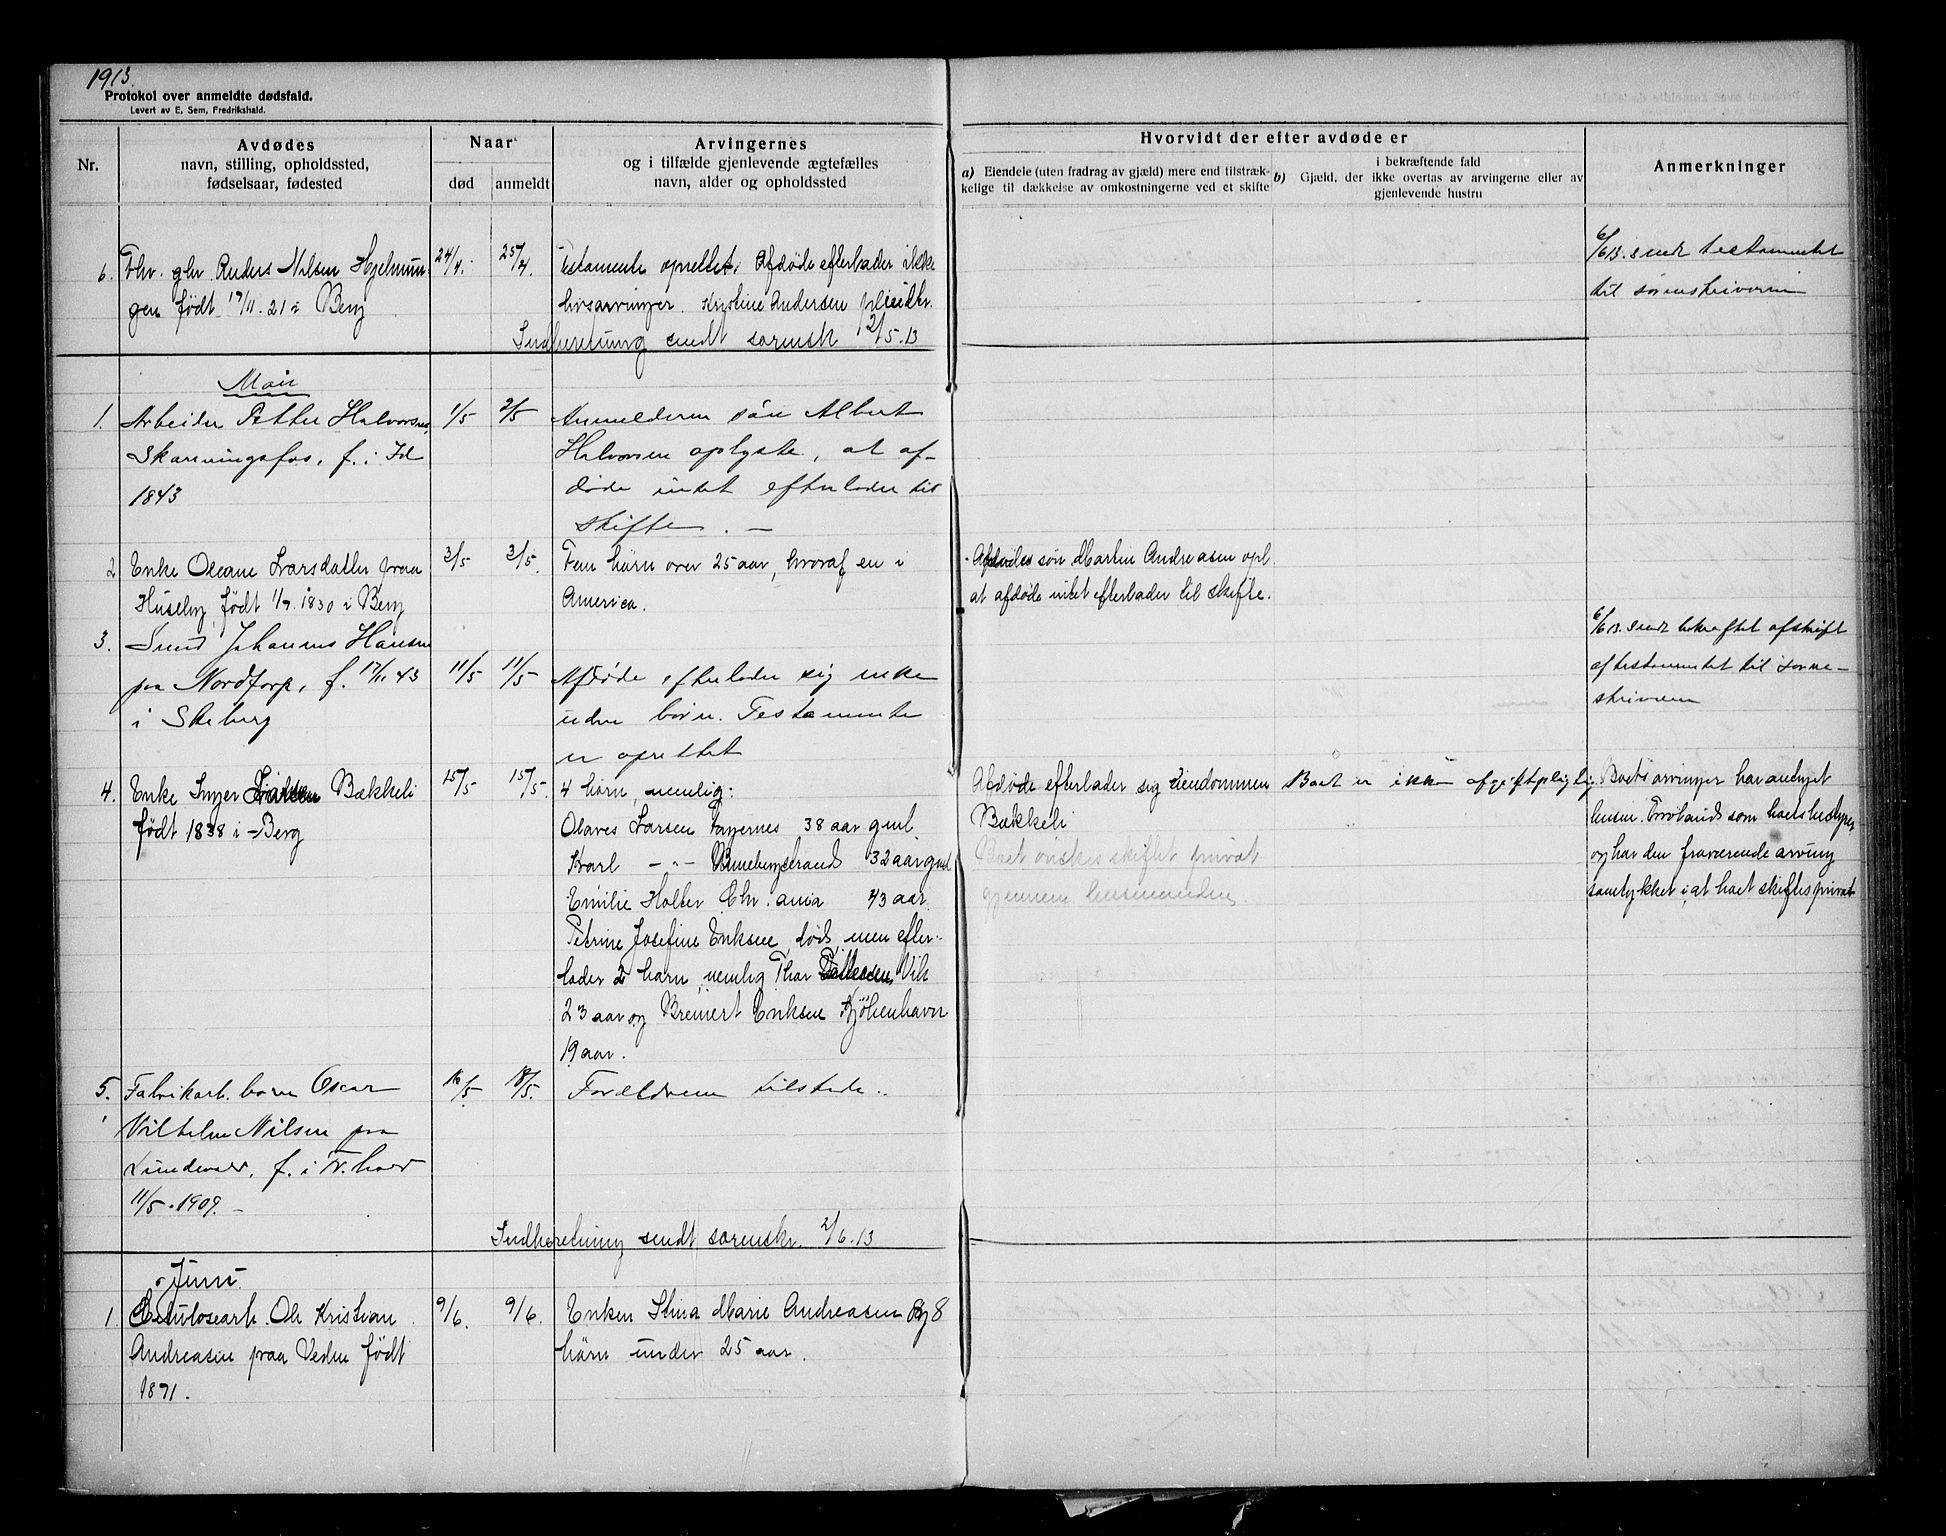 1913.
Protokol over anmeldte dødsfald.
Levert av E, Sem, Fredrikshald.
Nr.
Avdødes
navn, stilling, opholdssted,
fødselsaar, fødested
Naar
død
anmeldt
Arvingernes
og i tilfælde gjenlevende ægtefælles
navn, alder og opholdssted
Hvorvidt der efter avdøde er
a) Eiendele (uten fradrag av gjæld) mere end tilstræk-
kelige til dækkelse av omkostningerne ved et skifte
i bekræftende fald
b) Gjæld, der ikke overtas av arvingerne eller av
gjenlevende hustru
Anmerkninger
6. Fhv. gbr. Anders Nilsen Hjelmun-
gen født 17/11. 21 i Berg
24/4. 25/4.
Testamente oprettet. Afdøde efterlader ikke
livsarvinger. Kristine Andersen
Indberetning sendt sorensk 12/5.13
6/6 13. sendt testamentet
til sorenskriveren
Mai
1. Arbeider Petter Halvorsen,
Skaningsfos, f. i Id
1843
1/5 2/5
Anmelderen søn Albert
Halvorsen oplyste, at af-
døde intet efterlader til
skifte. —
2 Enke Oleane Larsdatter paa
Huseby, født 1/7. 1830 i Berg
3/5 3/5.
Fem børn over 25 aar, hvoraf en i
America.
Afdødes søn Martin Andreasen opl.
at afdøde intet efterlader til skifte.
3. Johannes Hansen
paa Nordtorp, f. 17/11 43
i Skeberg
11/5 11/5
Afdøde efterlader sig enke
uden børn. Testamente
er oprettet
6/6 13. sendt bekræftet afskrift
af testamentet til soren-
skriveren
4. Enke Inger Bækkeli
født 1838 i Berg
15/5 15/5.
4 børn, nemlig:
Olaves Larsen 38 aar gml.
Karl — „ — 32 aar gml
Emilie Holter Chr.ania 43 aar.
Petrine Josefine Eriksen, død, men efter-
lader 2 barn, nemlig Thor Vik
23 aar og Breinert Eriksen Kjøbenhavn
19 aar.
Afdøde efterlader sig eiendommen
Bækkeli
Boet ønskes skiftet privat
gjennem lensmanden.
Boet er ikke afgiftpligtig
Boets arvinger har antaget
lensm. som boets
og har den fraværende arving
samtykket i, at boet skiftes privat
5. Fabrikarb. barn Oscar
Vilhelm Nilsen paa
f. i Fr.hald
11/5. 1909. —
16/5. 18/5.
Forældrene tilstede..
Indberetning sendt sorenskr. 2/6.13
Juni
1. Ole Kristian
Andreasen paa Veden født
1871.
9/6. 9/6.
Enken Stina Marie Andreasen og 8
børn under 25 aar.